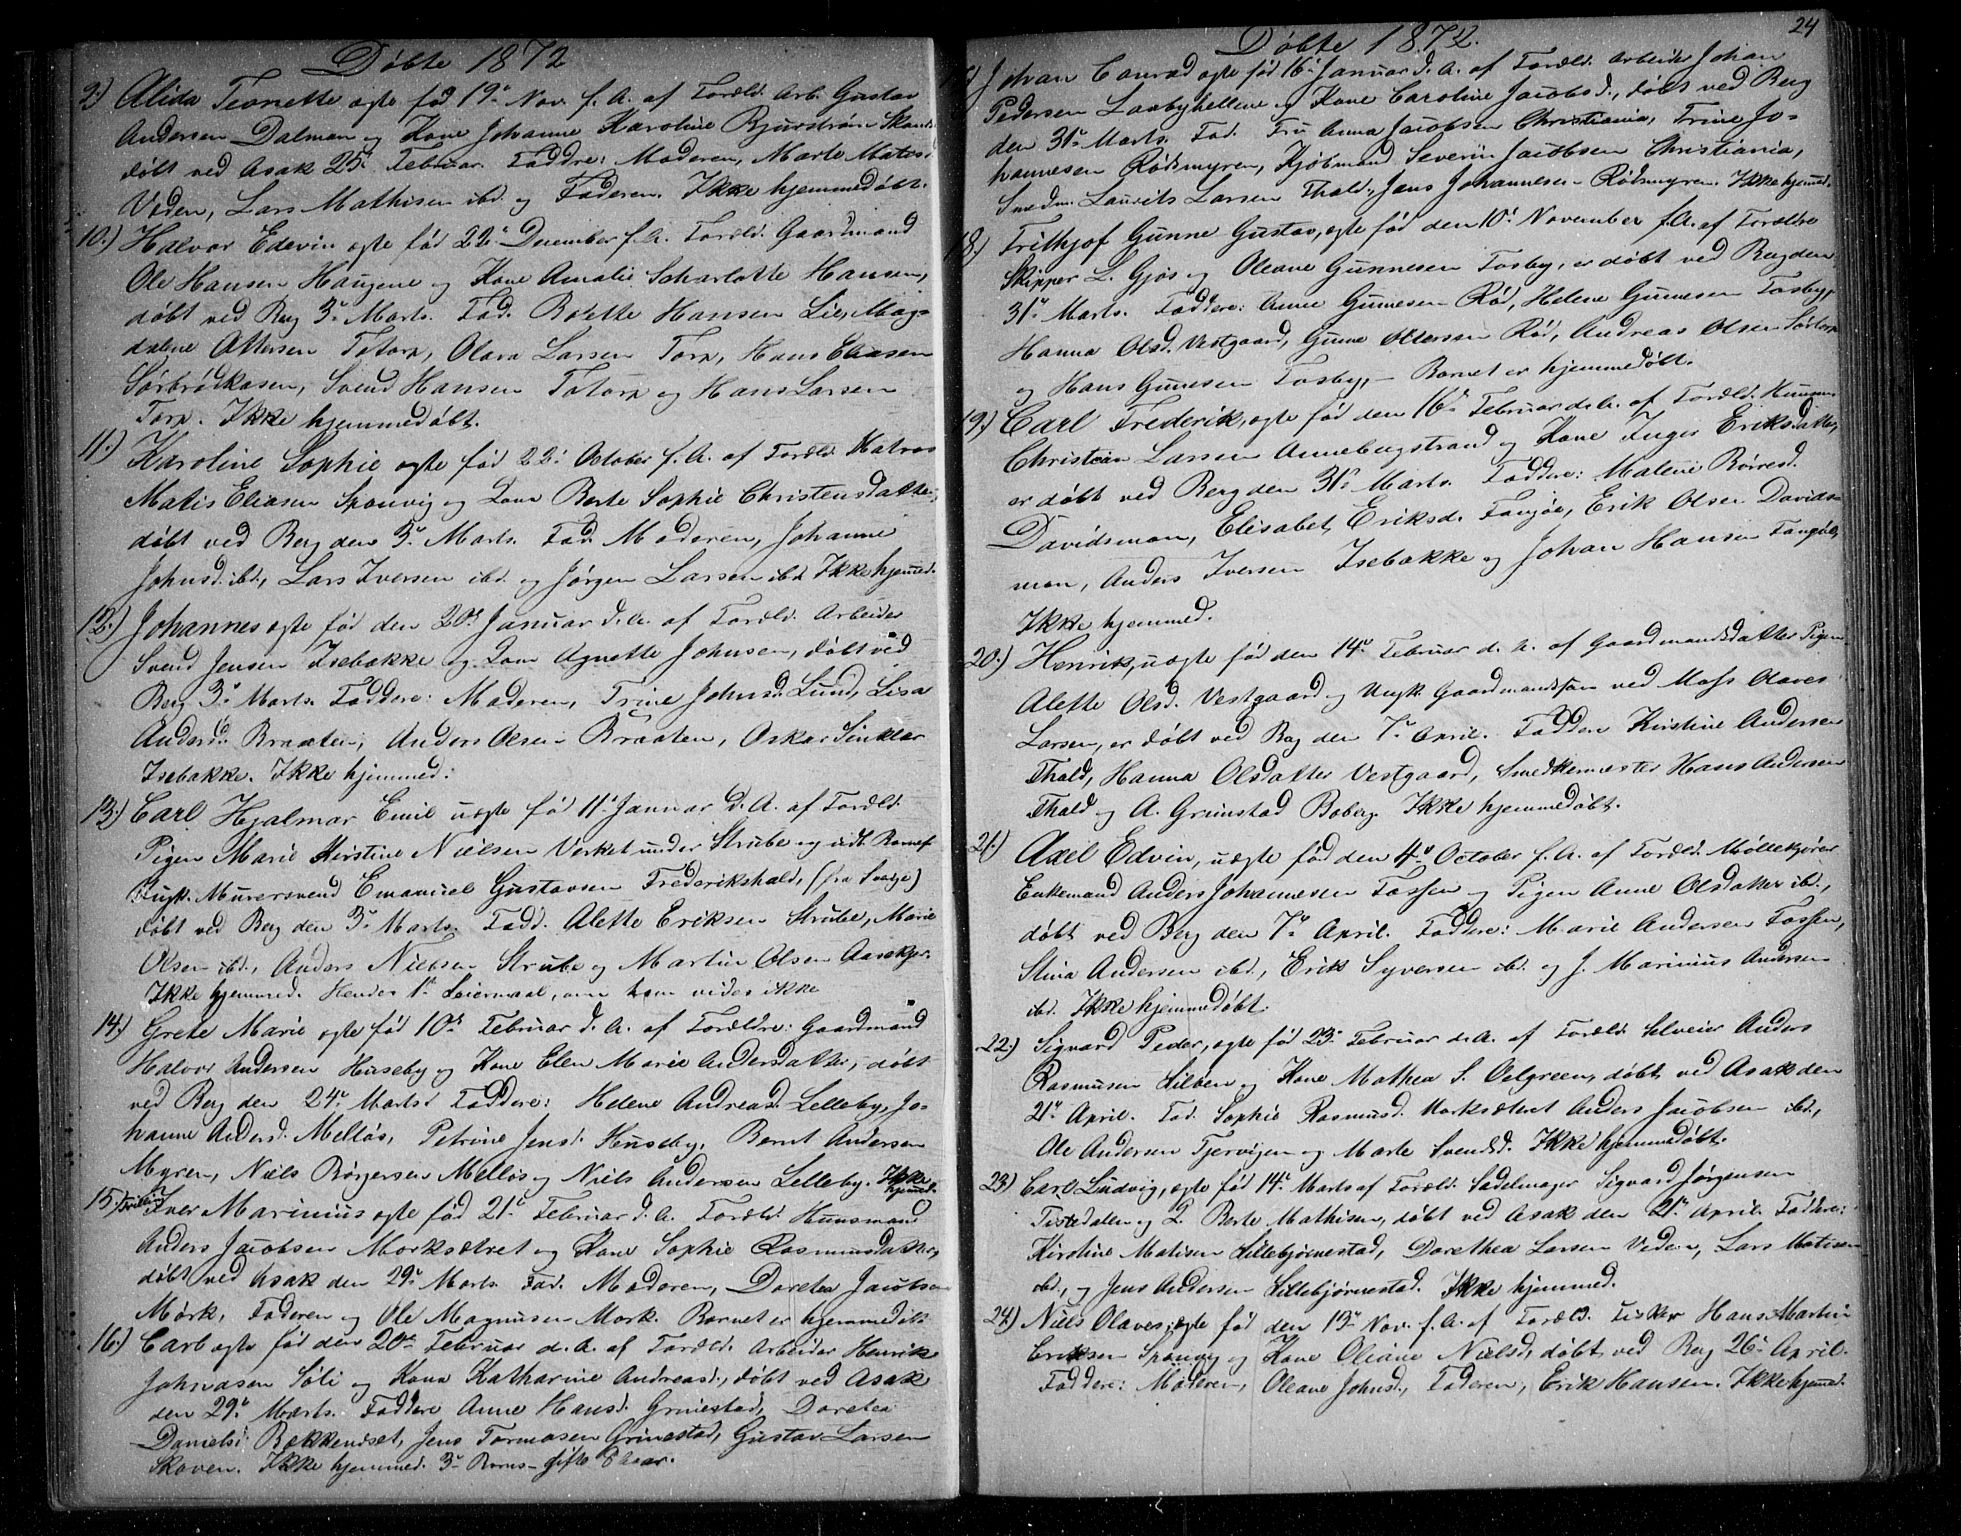 Döbte 1872
9.) Alida Teonette egte föd 19de Nov. f. A. af Foræld. Arb. Gustav
Andersen Dalman og Kone Johanne Karoline Bjurström
döbt ved Asak 25de Februar. Faddre: Moderen, Marte Matis.
Veden, Lars Mathisen ibd. og Faderen. Ikke hjemmedöbt.
10.) Halvor Edevin egte föd 22de December f. A. Foræld. Gaardmand
Ole Hansen Haugene og Kone Amalie Scharlotte Hansen,
döbt ved Berg 3de Marts. Fad. Bolette Hansen Lie, Mag-
dalene Ottersen Totorp, Olava Larsen Torp, Hans Eliasen
Sörbrödkasen, Svend Hansen Totorp og Hans Larsen
Torp. Ikke hjemmedöbt.
11.) Karoline Sophie egte föd 22de October f. A. af Foræld. Matros
Matis Eliasen Sponvig og Kone Berte Sophie Christensdatter,
döbt ved Berg den 3de Marts. Fad. Moderen, Johanne
Johnsd. ibd., Lars Iversen ibd. og Jörgen Larsen ibd. Ikke hjemmed.
12.) Johannes egte föd den 20de Januar d. A. af Foræld. Arbeider
Svend Jensen Isebakke og Kone Agnette Johnsen, döbt ved
Berg 3de Marts. Faddere: Moderen, Trine Johnsd. Lund, Lisa
Andersd. Braaten, Anders Olsen Braaten, Oskar Sinklar
Isebakke. Ikke hjemmed:
13.) Carl Hjalmar Emil uegte föd 11te Januar d. A. af Foræld.
Pigen Marie Kirstine Nielsen Verket under Strube og udl. Barnef.
Ungk. Murersvend Emanuel Gustavsen Frederikshald, (fra Sverige)
döbt ved Berg den 3de Marts. Fadd. Alette Eriksen Strube, Marie
Olsen ibd., Anders Nielsen Strube og Martin Olsen
Ikke hjemmed. Hendes 1te Leiermaal, om ham vides ikke
14.) Grete Marie egte föd 10de Februar d. A. af Forældre: Gaardmand
Halvor Andersen Huseby og Kone Elen Marie Andersdatter, döbt
ved Berg den 24de Marts. Faddere: Helene Andreasd. Lilleby, Jo-
hanne Andersd. Mellös, Petrine Jensd. Huseby, Bernt Andersen
Myren, Niels Börgersen Mellös og Niels Andersen Lilleby. Ikke hjemmed.
15.) Tvilling Iver Marinius egte föd 21de Februar d. A. Foræld. Huusmand
Anders Jacobsen Morksætret og Kone Sophie Rasmusdatter,
döbt ved Asak den 29de Marts. Fad. Moderen, Dorthea Jacobsen
Mörk, Faderen og Ole Magnusen Mork. Barnet er hjemmedöbt
16.) Carl egte föd den 20de Februar d. A. af Foræld. Arbeider Henrik
Johnasen Söli og Kone Katharine Andreasd., döbt ved Asak
den 29de Marts. Faddere Anne Hansd. Grimestad, Dorthea
Danielsd. Bækkenæset, Jens Tormosen Grimestad, Gustav Larsen
Skoven. Ikke hjemmed. 3de Barns gifte 8 aar.
24
Döbte 1872.
Johan Conrad egte föd 16de Januar d. A. af Foræld. Arbeider Johan
Pedersen Laabyhellene og Kone Caroline Jacobsd., döbt ved Berg
den 31te Marts. Fad. Fru Anna Jacobsen Christiania, Trine Jo-
hannesen Rödsmyren, Kjöbmand Severin Jacobsen Christiania,
Smedm. Laurits Larsen Thald., Jens Johannesen Rödsmyren. Ikke hjemmed.
18.) Frithjof Gunne Gustav, egte föd den 10de November f. A. af Forældre
Skipper L. Gjös og Oleane Gunnesen Tosby, er döbt ved Berg den
31te Marts. Faddere: Anne Gunnesen Röd, Helene Gunnesen Tosby,
Hanna Olsd. Vestgaard, Gunne Ottersen Röd, Andreas Olsen Sörtorp
og Hans Gunnesen Tosby, – Barnet er hjemmedöbt.
19.) Carl Frederik, egte föd den 16de Februar d. A. af Foræld. Huusm.
Christian Larsen Annebugstrand og Kone Inger Eriksdatter,
er döbt ved Berg den 31te Marts. Faddere: Malene Börresd.
Davidsmon, Elisabet Eriksd. Tangöe, Erik Olsen Davids-
mon, Anders Iversen Isebakke og Johan Hansen Tangöe,
Ikke hjemmed.
20.) Henrik, uegte föd den 14de Februar d. A. af Gaardmandsdatter Pigen
Alette Olsd. Vestgaard og Ungk. Gaardmandssön ved Moss Olaves
Larsen, er döbt ved Berg den 7de April. Faddere Kirstine Andersen
Thald, Hanna Olsdatter Vestgaard, Smedkemester Hans Andersen
Thald og A. Grimstad Boberg. Ikke hjemmedöbt.
21.) Axel Edvin, uegte föd den 4de October f. A. af Foræld. Möllekjörer
Enkemand Anders Johannesen Fossen og Pigen Anne Olsdatter ibd.,
döbt ved Berg den 7de April. Faddere: Marie Andersen Fossen,
Stina Andersen ibd., Erik Syversen ibd. og J. Marinius Andersen
ibd. Ikke hjemmedöbt.
22.) Sigvard Peder, egte föd 23de Februar d. A. af Foræld. Selveier Anders
Rasmusen Lilöen og Kone Mathea S. Oelgreen, döbt ved Asak den
21de April. Fad. Sophie Rasmusd. Morksæteret Anders Jacobsen ibd.,
Ole Andersen Tjervigen og Marte Svendsd. Ikke hjemmedöbt.
23.) Carl Ludvig, egte föd 14de Marts af Foræld. Sadelmager Sigvard Jörgensen
Tistedalen og K. Berte Mathisen, döbt ved Asak den 21de April. Faddere:
Kirstine Matisen Lillebjörnestad, Dorethea Larsen Veden, Lars Matisen
ibd., og Jens Andersen Lillebjörnestad. Ikke hjemmed.
24.) Niels Olaves, egte föd den 19de Nov. f. A. af Foræld. Fisker Hans Martin
Eriksen Sponvig og Kone Oliane Nielsd., döbt ved Berg 26de April.
Faddere: Moderen, Oleane Johnsd., Faderen, Erik Hansen. Ikke hjemmed.